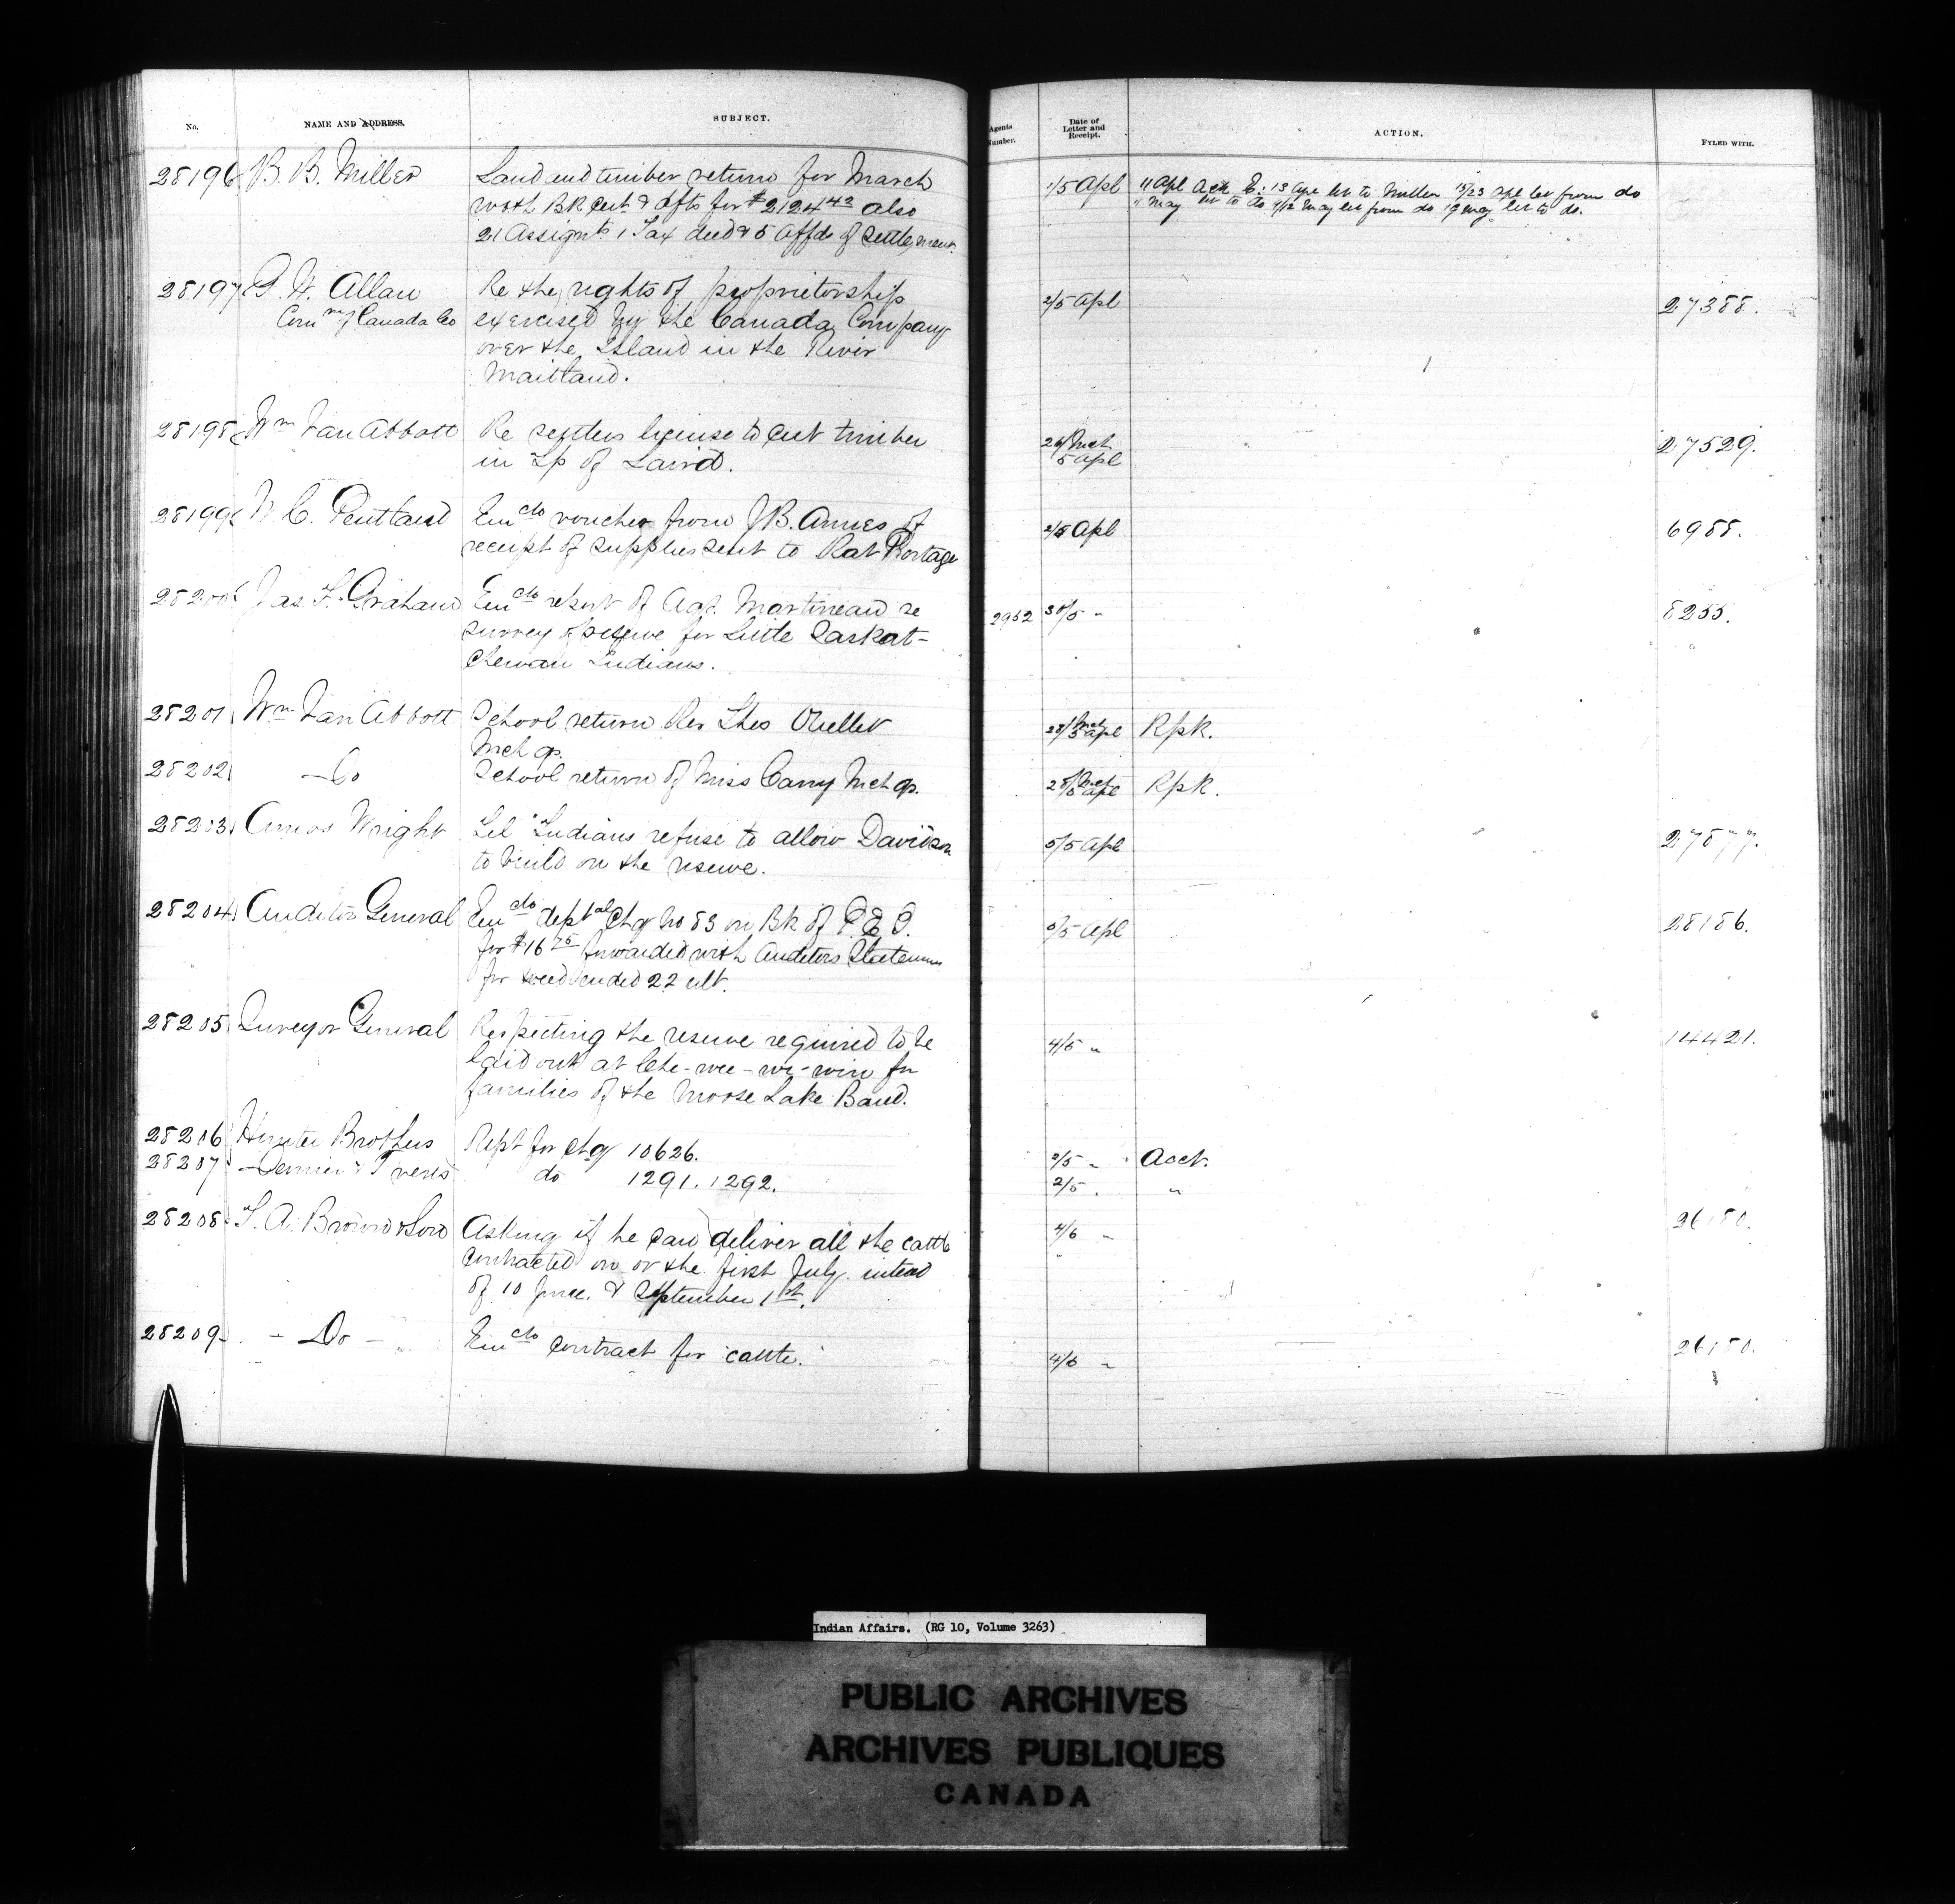 No. NAME AND ADDRESS. SUBJECT. Agents Number. Date of Letter and Receipt. ACTION. FYLED WITH.
28196 B. B. Miller Land and timber return for March 1/5 Apl 11 Apl Ack E: 13 Apl let to Miller 15/23 Apl let from do
with Bk Cert & dfts for $2124.42 also " May let to do 9/12 May let from do 19 May let to do.
21 Assignts 1 Tax deed & 5 Affds of Settlement
28197 G. W. Allan Re the rights of proprietorship 2/5 Apl 27388.
Comr of Canada Co exercised by the Canada Company
over the Island in the River
Maitland.
28198 Wm Van Abbott Re settlers license to cut timber 26/Mch 27529.
in Tp of Laird. 5 Apl
28199 W. C. Pentland voucher from J.B. Annes of 2/5 Apl 6988.
receipt of supplies sent to Rat Portage
28200 Jas F. Graham report of Agt. Martineau re 2952 30/5 " 8255.
survey of reserve for Little Saskat-
chewan Indians.
28201 Wm Van Abbott School return Rev Thos Ouellet 28/Mch 5 Apl Rpk.
Mch qr.
28202 — Do School return of Miss Carry Mch qr. 28/Mch 5 Apl Rpk.
28203 Amos Wright Tel Indians refuse to allow Davidson 5/5 Apl 27877.
to build on the reserve.
28204 Auditor General deptal Chq No 83 on Bk of P.E.I. 5/5 Apl 28186.
for $16.75 forwarded with Auditors Statement
for week ended 22 ult.
28205 Surveyor General Respecting the reserve required to be 4/5 " 14421.
laid out at Che-me-wa-win for
families of the Moose Lake Band.
28206 Hunter Brothers Rept for chq 10626. 2/5 " Acct.
28207 do 1291. 1292. 2/5 . "
28208 T. A. Brown & Son Asking if he can deliver all the cattle 4/6 " 26180.
contracted on or the first July. intead
of 10 June. & September 1st.
28209 - Do - contract for cattle. 4/6 " 26180.
Indian Affairs. (RG 10, Volume 3263)
PUBLIC ARCHIVES
ARCHIVES PUBLIQUES
CANADA